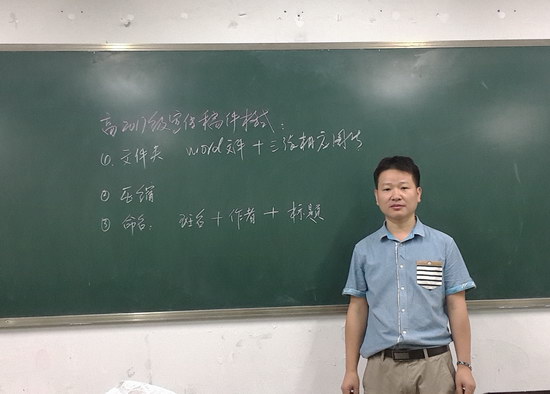 高2017级宣传稿件格式：
①. 文件夹 word文件 + 三张相应图片
② 压缩
③ 命名： 班名 + 作者 + 标题